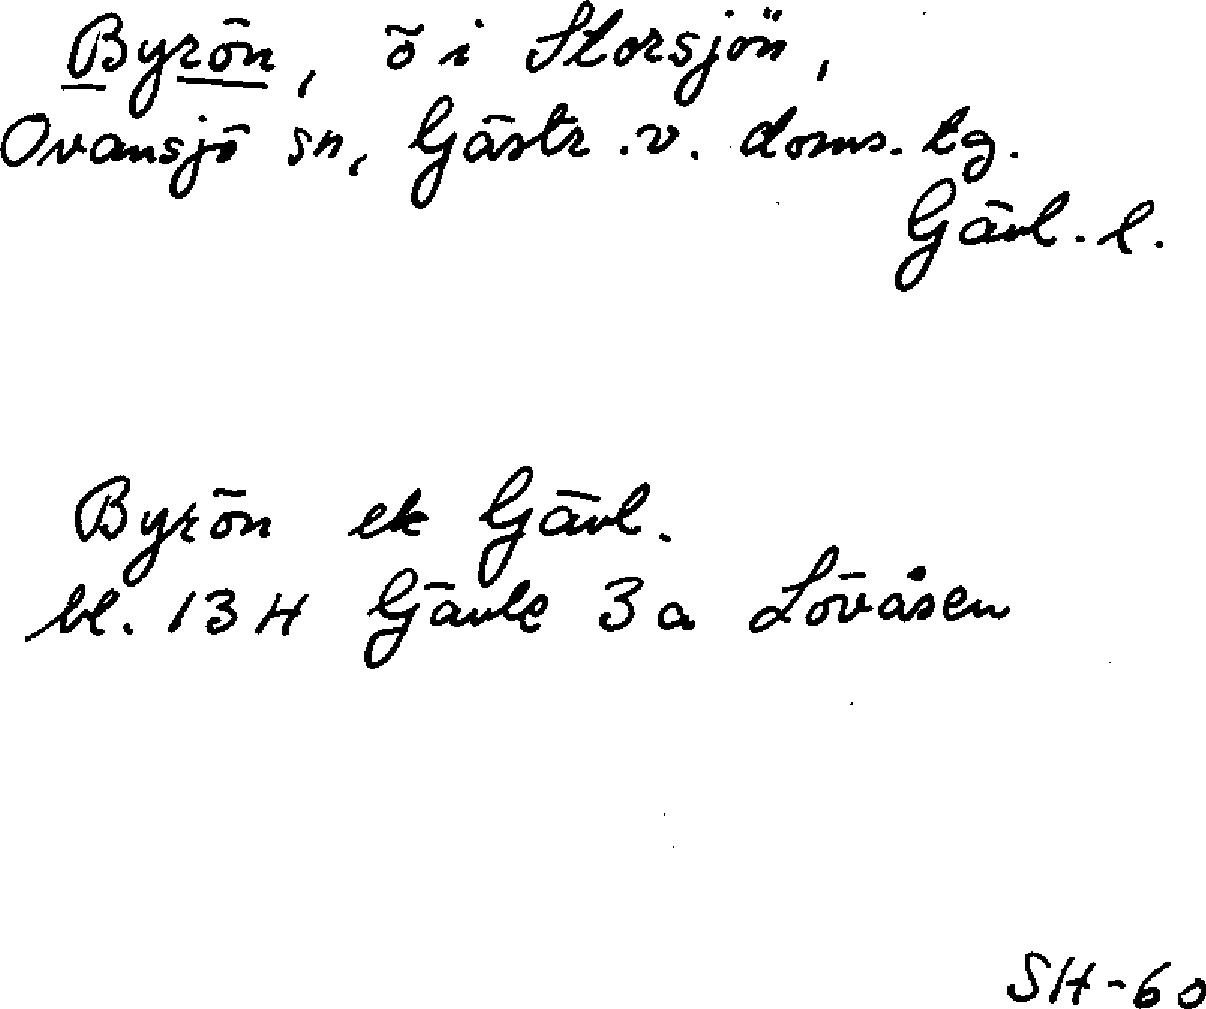 Byrön, ö i Storsjön,
Ovansjö sn, Gästr. v. doms. tg.
Gävl. l.
Byrön ek Gävl.
bl. 13 H Gävle 3 a Lövåsen
SH-60